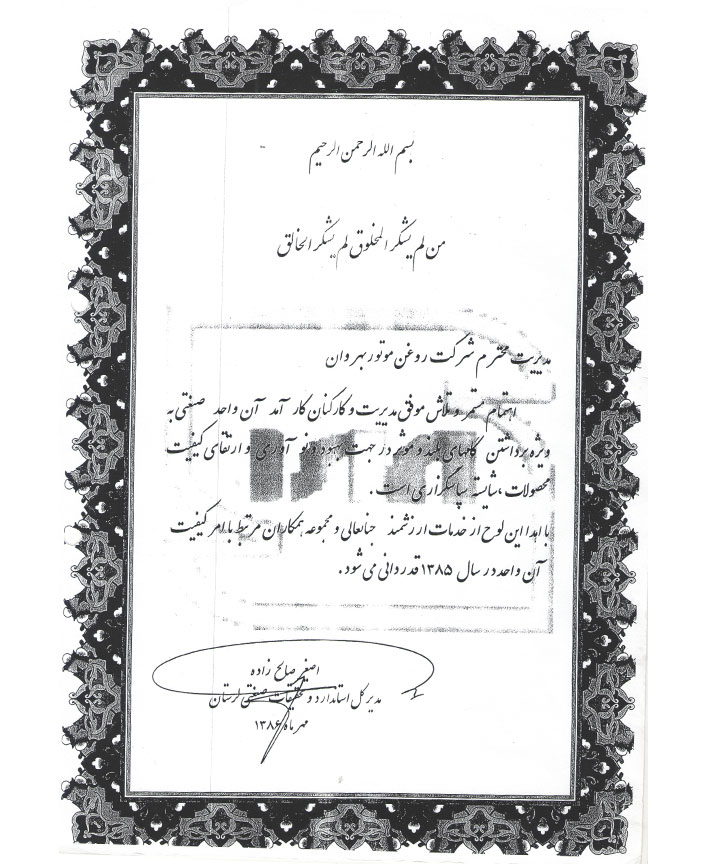 بسم الله الرحمن الرحیم
من لم یشکر المخلوق لم یشکر الخالق
مدیریت محترم شرکت روغن موتور بهروان
اهتمام مستمر و تلاش موفق مدیریت و کارکنان کار آمد آن واحد صنعتی به
ویژه برداشتن گامهای بلند و موثر در جهت بهبود و نو آوری و ارتقای کیفیت
محصولات ، شایسته سپاسگزاری است .
با اهدا این لوح از خدمات ارزشمند جنابعالی و مجموعه همکاران مرتبط با امر کیفیت
آن واحد در سال ۱۳۸۵ قدردانی می شود .
اصغر صالح زاده
مدیر کل استاندارد و تحقیقات صنعتی لرستان
مهر ماه ۱۳۸۶